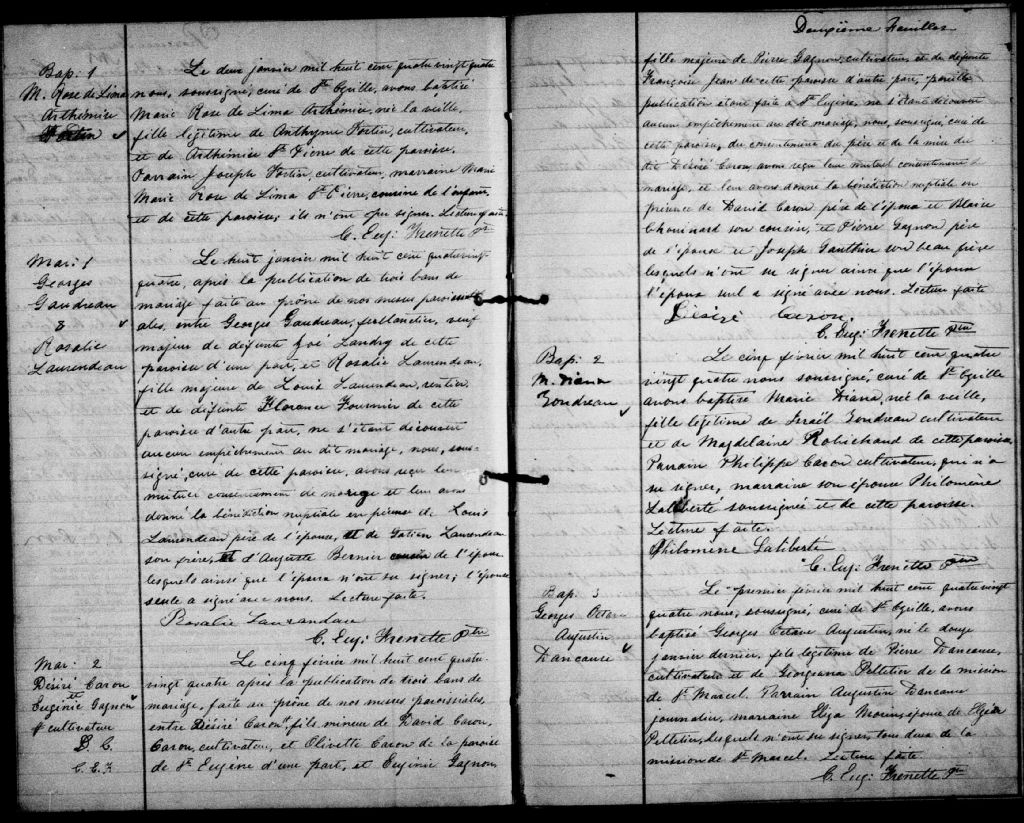 Bap: 1
M. Rose de Lima
Arthémise
Fortin
Le deux janvier mil huit cent quatre vingt quatre
nous, soussigné, curé de St Cyrille, avons baptisé
Marie Rose de Lima Arthémise, née la veille,
fille légitime de Anthyme Fortin, cultivateur,
et de Arthémise St Pierre de cette paroisse.
Parrain Joseph Fortin, cultivateur, marraine Marie
Marie Rose de Lima St Pierre, cousine de l'enfant,
et de cette paroisse; ils n'ont pu signer. Lecture faite.
C. Eug: Frenette Ptre
Mar: 1
Georges
Gaudreau
&
Rosalie
Laurendeau
Le huit janvier mil huit cent quatre vingt
quatre, après la publication de trois bans de
mariage faite au prône de nos messes paroissi-
ales, entre Georges Gaudreau, ferblantier, veuf
majeur de défunte Zoé Landry de cette
paroisse d'une part, et Rosalie Laurendeau,
fille majeure de Louis Laurendeau, rentier
et de défunte Florence Fournier de cette
paroisse d'autre part, ne s'étant découvert
aucun empêchement au dit mariage, nous, sous-
signé, curé de cette paroisse, avons reçu leur
mutuel consentement de mariage et leur avons
donné la bénédiction nuptiale en présence de Louis
Laurendeau père de l'épouse, de Tatien Laurendeau
son frère, d'Auguste Bernier cousin de l'épouse
lesquels ainsi que l'époux n'ont su signer; l'épouse
seule a signé avec nous. Lecture faite.
Rosalie Laurandau
C. Eug: Frenette Ptre
Mar: 2
Désiré Caron
et
Eugénie Gagnon
# cultivateur
D. C.
C. E. F
Le cinq février mil huit cent quatre-
vingt quatre après la publication de trois bans de
mariage, faite au prône de nos messes paroissiales,
entre Désiré Caron# fils mineur de David Caron,
Caron, cultivateur, et Olivette Caron de la paroisse
de St Eugène d'une part, et Eugénie Gagnon,
Deuxième Feuillet
fille majeure de Pierre Gagnon, cultivateur, et de défunte
Françoise Jean de cette paroisse d'autre part, pareille
publication étant faite à St Eugène, ne s'étant découvert
aucun empêchement au dit mariage, nous, soussigné, curé de
cette paroisse, du consentement du père et de la mère du
dit Désiré Caron, avons reçu leur mutuel consentement de
mariage, et leur avons donné la bénédiction nuptiale en
présence de David Caron père de l'époux et Blaise
Chouinard son cousin, et Pierre Gagnon père
de l'épouse et Joseph Gauthier son beau frère
lesquels n'ont su signer ainsi que l'épouse
l'époux seul a signé avec nous. Lecture faite
Désiré Caron.
C. Eug: Frenette Ptre
Bap: 2
M. Diana
Gondreau
Le cinq février mil huit cent quatre
vingt quatre nous soussigné, curé de St Cyrille
avons baptisé Marie Diana, née la veille,
fille légitime de Israël Gondreau cultivateur
et de Magdelaine Robichaud de cette paroisse,
Parrain Philippe Caron cultivateur, qui n'a
su signer, marraine son épouse Philomène
Laliberté soussignée et de cette paroisse.
Lecture faite.
Philomène Laliberté
C. Eug: Frenette Ptre
Bap: 3
Georges Octave
Augustin
Dancause
Le premier février mil huit cent quatre vingt
quatre nous, soussigné, curé de St Cyrille, avons
baptisé Georges Octave Augustin, né le douze
janvier dernier, fils légitime de Pierre Dancause,
cultivateur et de Georgiana Pelletier de la mission
de St Marcel. Parrain Augustin Dancause
journalier, marraine Eliza Morin, épouse de Elzéar
Pelletier, lesquels n'ont su signer, tous deux de la
mission de St Marcel. Lecture faite
C. Eug: Frenette Ptre